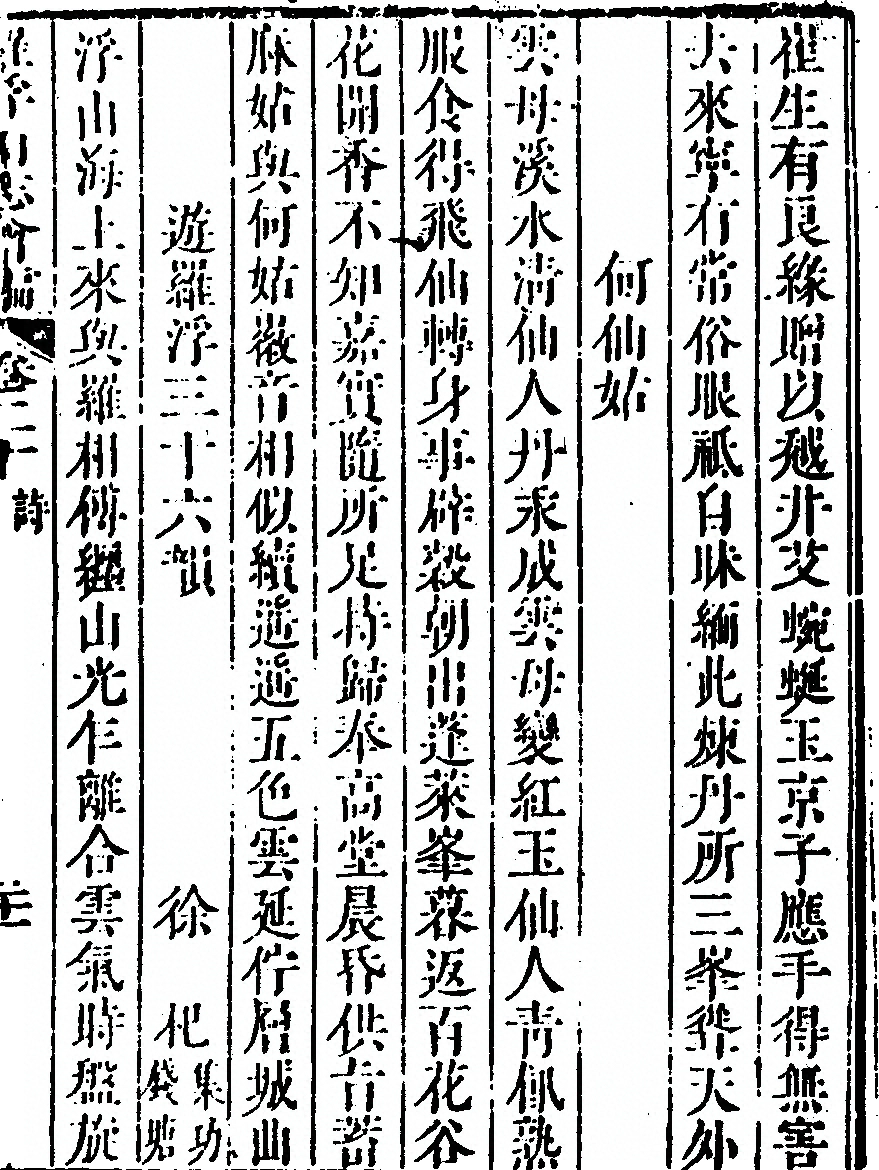 崔生有良緣贈以越井艾蜿蜒玉京子應手得無害
去來寧有常俗眼祗自昧緬此煉丹所三峯拳天外
何仙姑
雲母溪水清仙人丹汞成雲母變紅玉仙人青郁熟
服食得飛仙轉身事辟穀朝出蓬萊峯暮返百花谷
花開香不如嘉實隨所足持歸奉高堂晨昏供旨蓄
麻姑與何姑徽音相似續遥遥五色雲延佇層城曲
遊羅浮三十六韻
徐杞集功錢塘
浮山海上來與羅相傅纆山光乍離合雲氣時盤旋
卷二二
詩